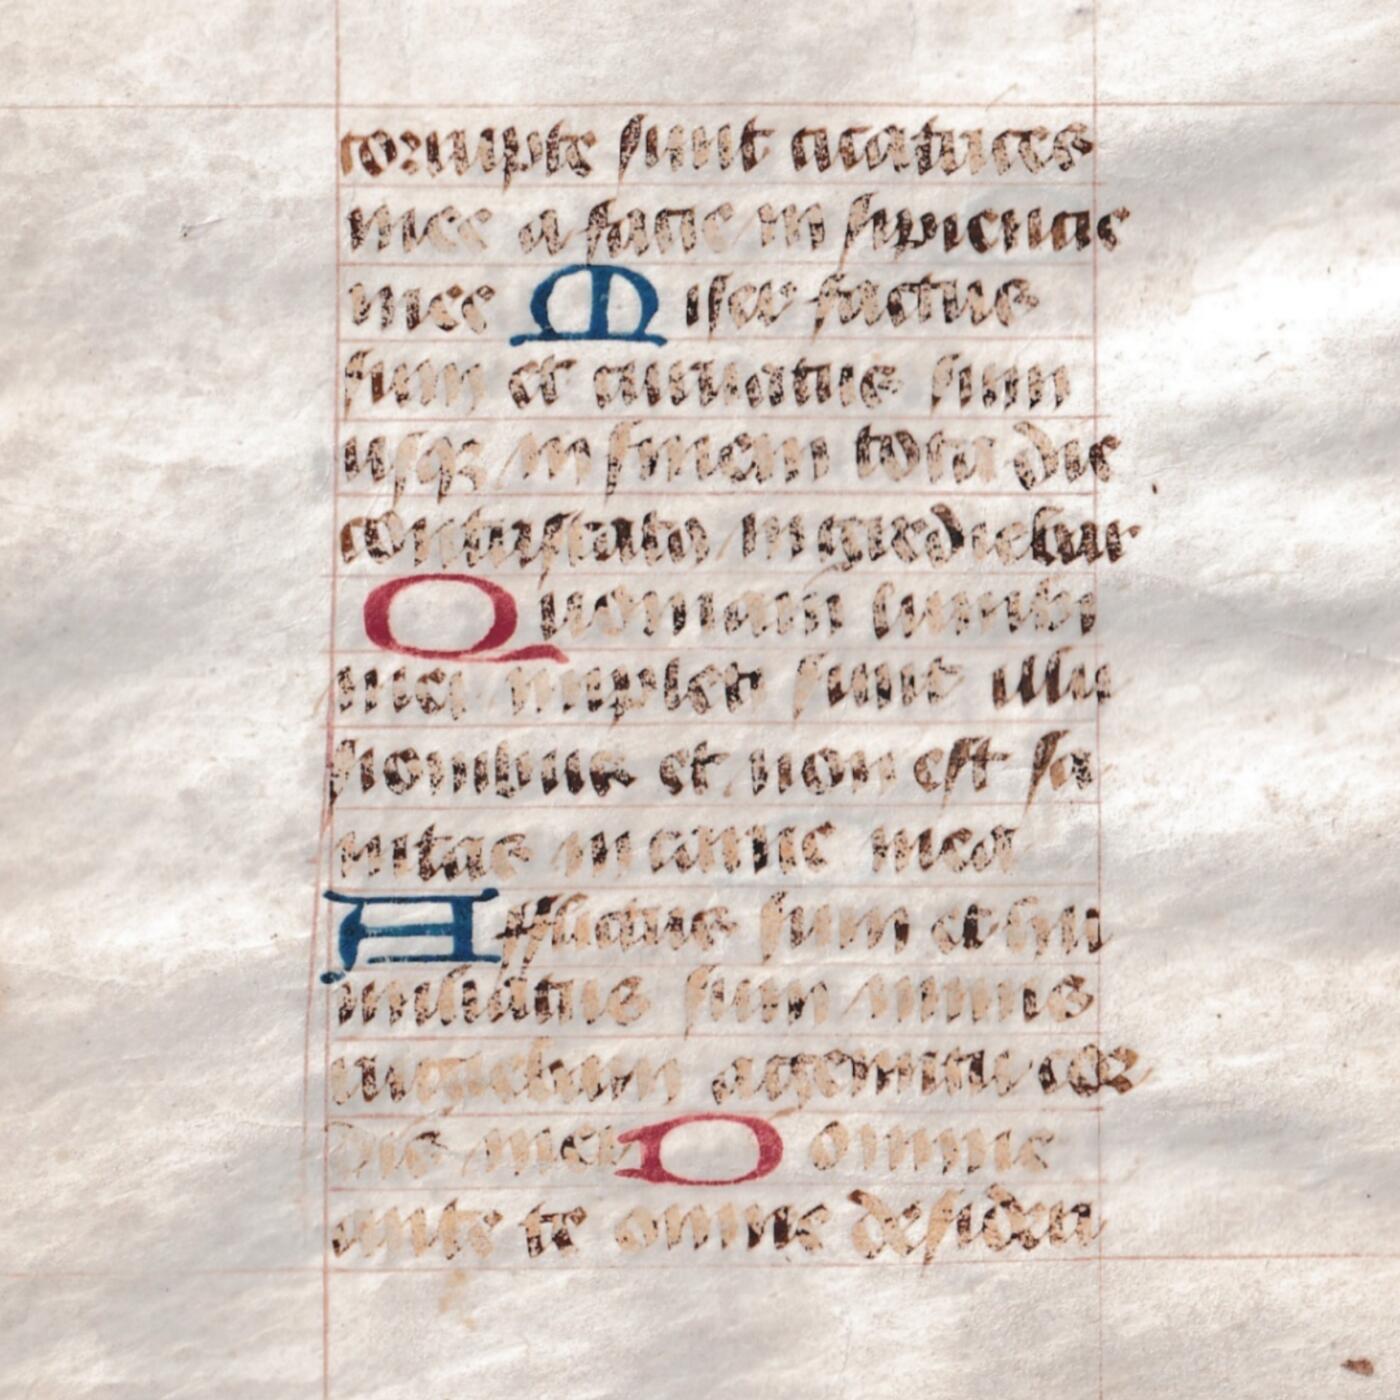 corrupte sunt cicatrices
mee a facie insipiencie
mee Miser factus
sum et curuatus sum
usqꝫ in finem tota die
contristatꝰ ingrediebar
Quoniam lumbi
mei impleti sunt illu
sionibus et non est sa
nitas in carne mea
Afflictus sum et hu
miliatus sum nimis
rugiebam a gemitu cor
dis mei Domine
ante te omne desideri